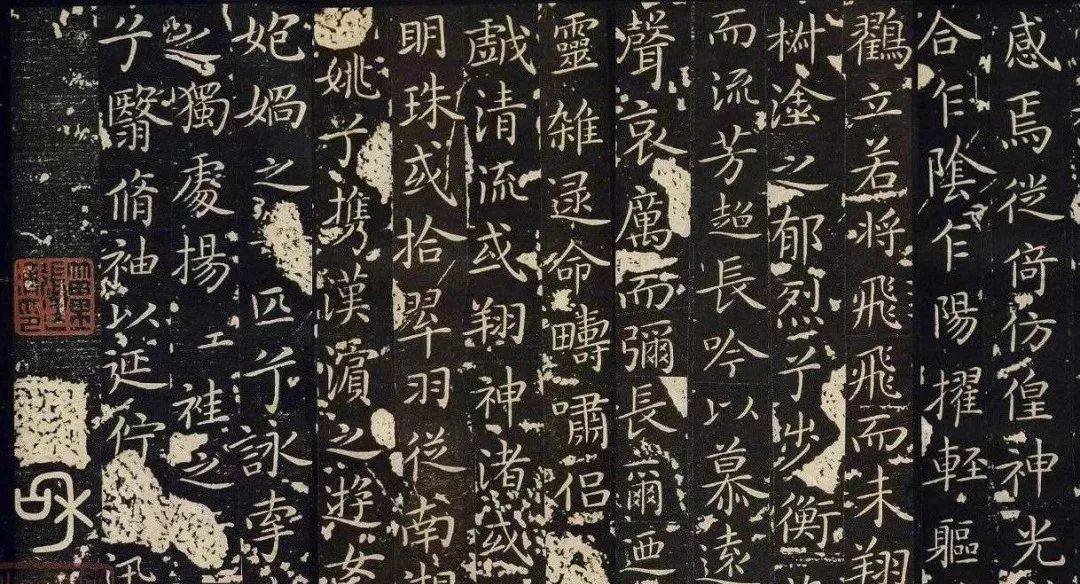 感焉徙倚仿偟神光
合乍陰乍陽擢輕軀
鸖立若將飛飛而未翔
樹塗之郁烈兮步衡
而流芳超長吟以慕遠
聲哀厲而彌長爾迺
靈雜遝命疇嘯侶
戲清流或翔神渚或
明珠或拾翠羽從南湘
姚兮攜漢濱之遊女
媧之匹兮詠牽
之獨處揚袿之
兮翳脩袖以延佇迅